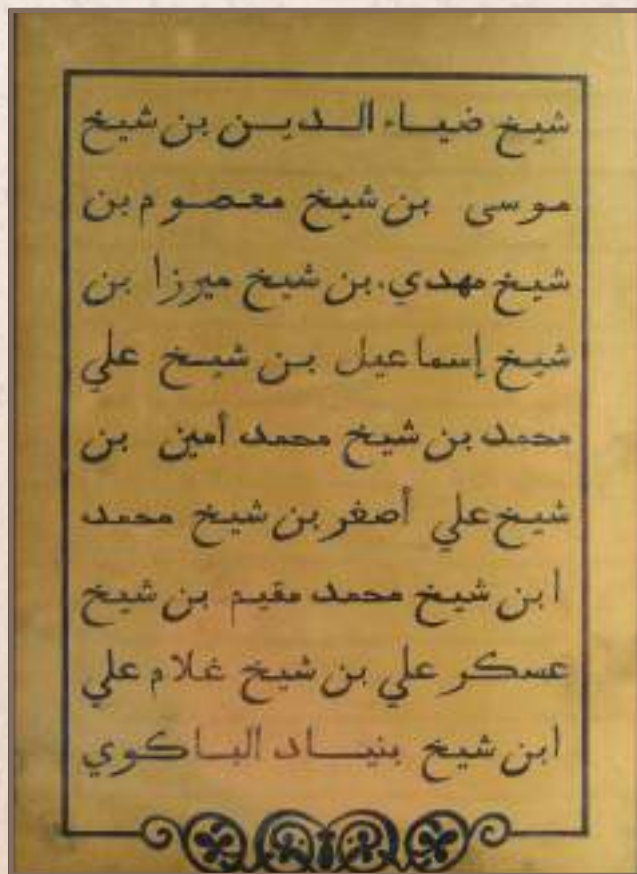 شيخ ضياء الدين بن شيخ
موسى بن شيخ معصوم بن
شيخ مهدي. بن شيخ ميرزا بن
شيخ إسماعيل بن شيخ علي
محمد بن شيخ محمد أمين بن
شيخ علي أصغر بن شيخ محمد
ابن شيخ محمد مقيم بن شيخ
عسكر علي بن شيخ غلام علي
ابن شيخ بنياد الباكوي